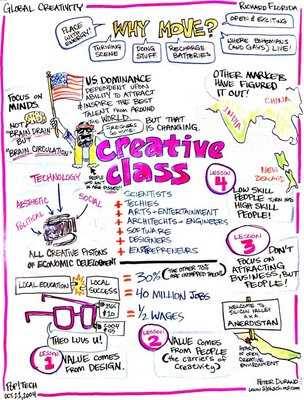 GLOBAL CREATIVITY
RICHARD FLORIDA
WHY MOVE?
PLACE
WITH ENERGY!
OPEN & EXCITING
THRIVING
SCENE
DOING
STUFF
RECHARGE
BATTERIES
WHERE BOHEMIANS
(AND GAYS) LIVE!
FOCUS ON
MINDS.
NOT
"BRAIN DRAIN"
BUT
"BRAIN CIRCULATION"
U.S. DOMINANCE
DEPENDENT UPON
ABILITY TO ATTRACT
& INSPIRE THE BEST
TALENT FROM AROUND
THE WORLD.
BUT THAT
IS CHANGING.
OTHER MARKETS
HAVE FIGURED
IT OUT!
CHINA
INDIA
NEW
ZEALAND
creative
class
TECHNOLOGY
AESTHETIC
SOCIAL
POLITICAL
ALL CREATIVE PISTONS
OF ECONOMIC DEVELOPMENT
SCIENTISTS
+ TECHIES
+ ARTS + ENTERTAINMENT
+ ARCHITECTS + ENGINEERS
+ SOFTWARE
+ DESIGNERS
+ ENTREPRENEURS
= 30%
(THE OTHER 70%
ARE UNTAPPED
= 40 MILLION JOBS
= 1/2 WAGES
LESSON
4
LOW SKILL
PEOPLE TURN INTO
HIGH SKILL
PEOPLE!
LESSON
3
DON'T
FOCUS ON
ATTRACTING
BUSINESS, BUT
PEOPLE!
LOCAL EDUCATION
LOCAL
SUCCESS
THEO LUVS U!
LESSON
1
VALUE COMES
FROM DESIGN.
LESSON
2
VALUE COMES
FROM PEOPLE
(the carriers of
creativity)
WELCOME TO
SILICON VALLEY
A.K.A.
ANERDISTAN
POP!TECH
OCT. 23, 2004
PETER DURAND